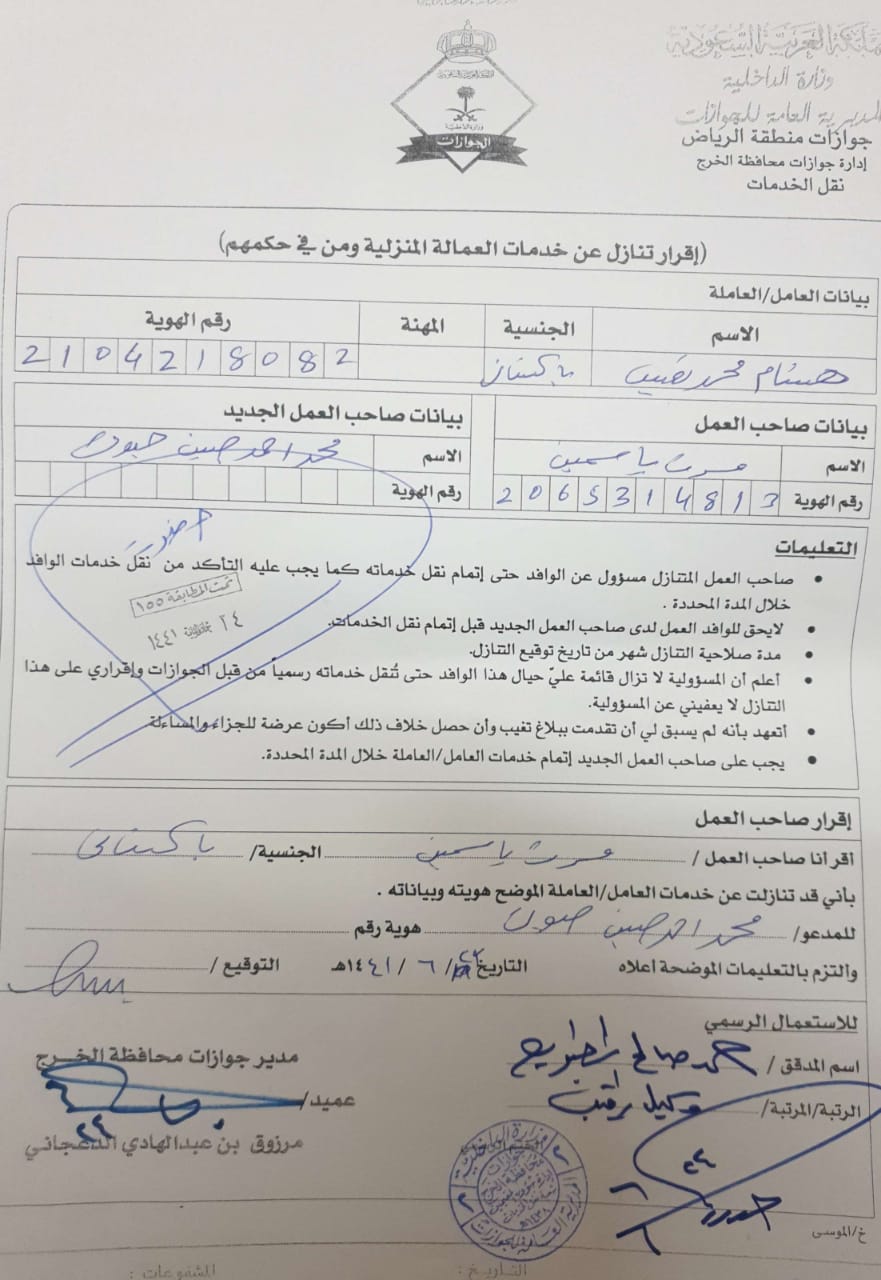 المملكة العربية السعودية
وزارة الداخلية
المديرية العامة للجوازات
جوازات منطقة الرياض
إدارة جوازات محافظة الخرج
نقل الخدمات
الجوازات
(إقرار تنازل عن خدمات العمالة المنزلية ومن في حكمهم)
بيانات العامل/العاملة
الاسم الجنسية المهنة رقم الهوية
محمد 2104218082
بيانات صاحب العمل
الاسم ياسمين
رقم الهوية 2065314813
بيانات صاحب العمل الجديد
الاسم محمد احمد حسين
رقم الهوية
التعليمات
• صاحب العمل المتنازل مسؤول عن الوافد حتى إتمام نقل خدماته كما يجب عليه التأكد من نقل خدمات الوافد
خلال المدة المحددة .
• لايحق للوافد العمل لدى صاحب العمل الجديد قبل إتمام نقل الخدمات.
• مدة صلاحية التنازل شهر من تاريخ توقيع التنازل.
• أعلم أن المسؤولية لا تزال قائمة عليّ حيال هذا الوافد حتى تُنقل خدماته رسمياً من قبل الجوازات وإقراري على هذا
التنازل لا يعفيني عن المسؤولية.
• أتعهد بأنه لم يسبق لي أن تقدمت ببلاغ تغيب وأن حصل خلاف ذلك أكون عرضة للجزاء والمساءلة
• يجب على صاحب العمل الجديد إتمام خدمات العامل/العاملة خلال المدة المحددة.
تمت المطابقة ١٥٥
٢٤ ١٤٤١
إقرار صاحب العمل
اقر أنا صاحب العمل / ياسمين الجنسية/
بأني قد تنازلت عن خدمات العامل/العاملة الموضح هويته وبياناته .
للمدعو/ محمد احمد حسين هوية رقم
والتزم بالتعليمات الموضحة أعلاه التاريخ / ٦ / ١٤٤١هـ التوقيع /
للاستعمال الرسمي
اسم المدقق / صالح
الرتبة/المرتبة/ وكيل رقيب
مدير جوازات محافظة الخرج
عميد/
مرزوق بن عبدالهادي الدعجاني
خ/الموسى
التاريخ : المشفوعات :